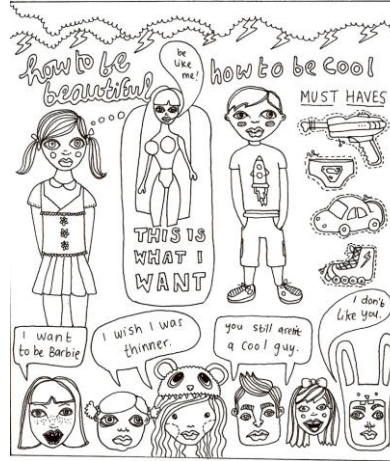 how to be
beautiful
be
like
me!
how to be cool
MUST HAVES
THIS IS
WHAT I
WANT
I want
to be Barbie
I wish I was
thinner.
you still aren't
a cool guy.
I don't
like you.